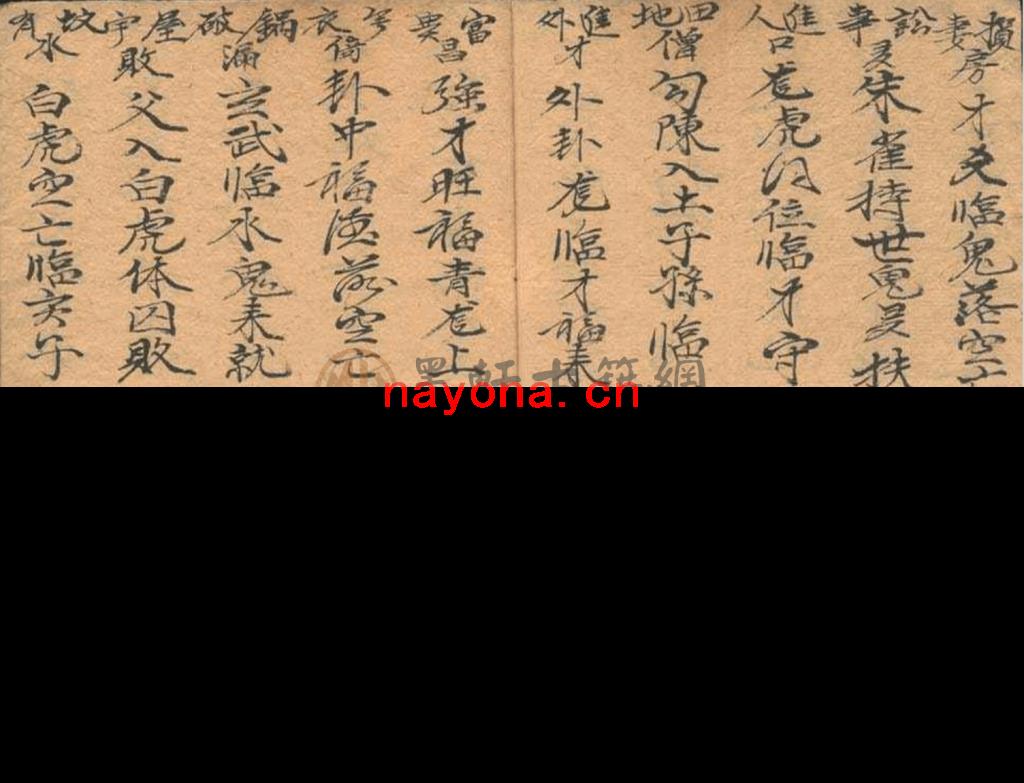 損妻房才爻臨鬼落空亡
訟事爻朱雀持世鬼爻扶
進人口龙虎同位臨才守
田地僧勾陳入土子孫臨
進外才外卦龙臨才福来
富貴昌強才旺福青龙上
衣倚卦中福德落空亡
鍋破漏玄武臨水鬼来就
屋宇敗父入白虎体囚敗
坟有水白虎空亡臨亥子
墨軒古籍網
nayona.cn